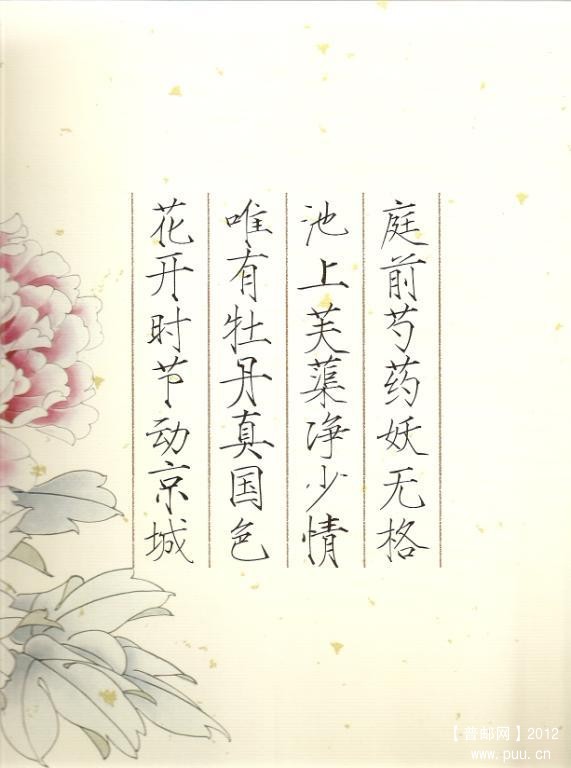 庭前芍药妖无格
池上芙蕖净少情
唯有牡丹真国色
花开时节动京城
【普邮网】2012
www.puu.cn